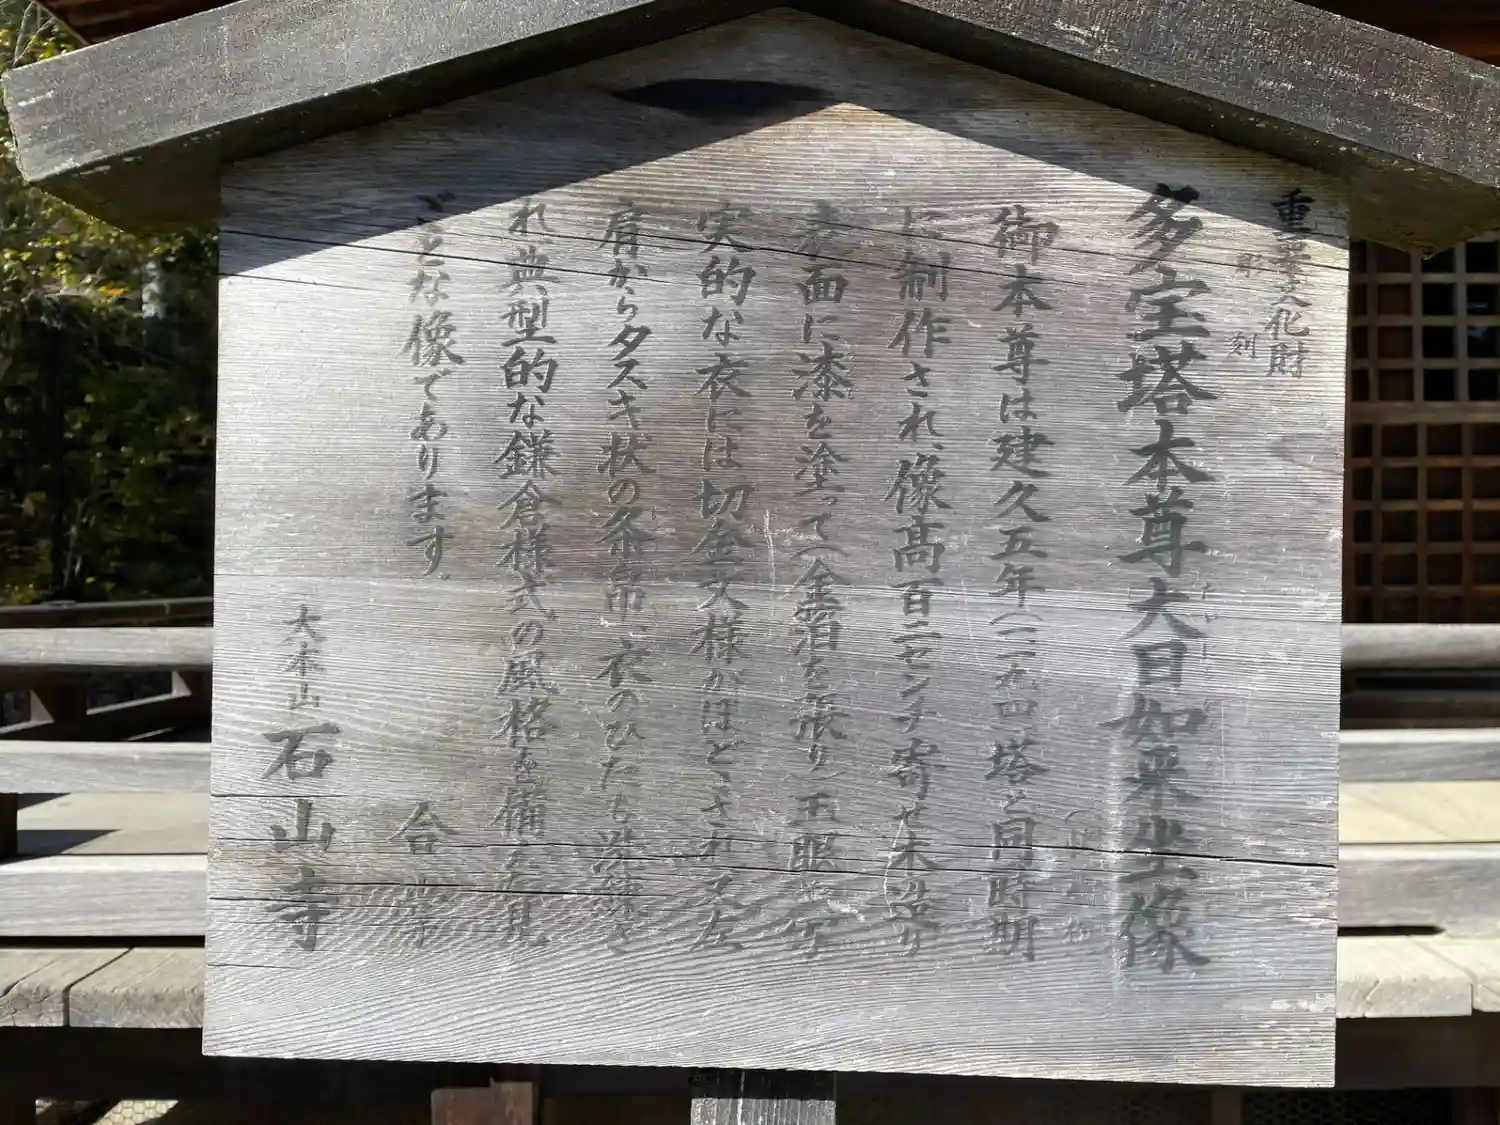 重要文化財
彫刻
多宝塔本尊大日如来坐像
御本尊は建久五年(一一九四)塔と同時期
に制作され、像高百二センチ寄せ木造り
表面に漆を塗って(金箔を張り)玉眼
実的な衣には切金文様がほどこされ又左
肩からタスキ状の条帛、衣のひだも洗練さ
れ典型的な鎌倉様式の風格を備え見
ごとな像であります。
合掌
大本山 石山寺